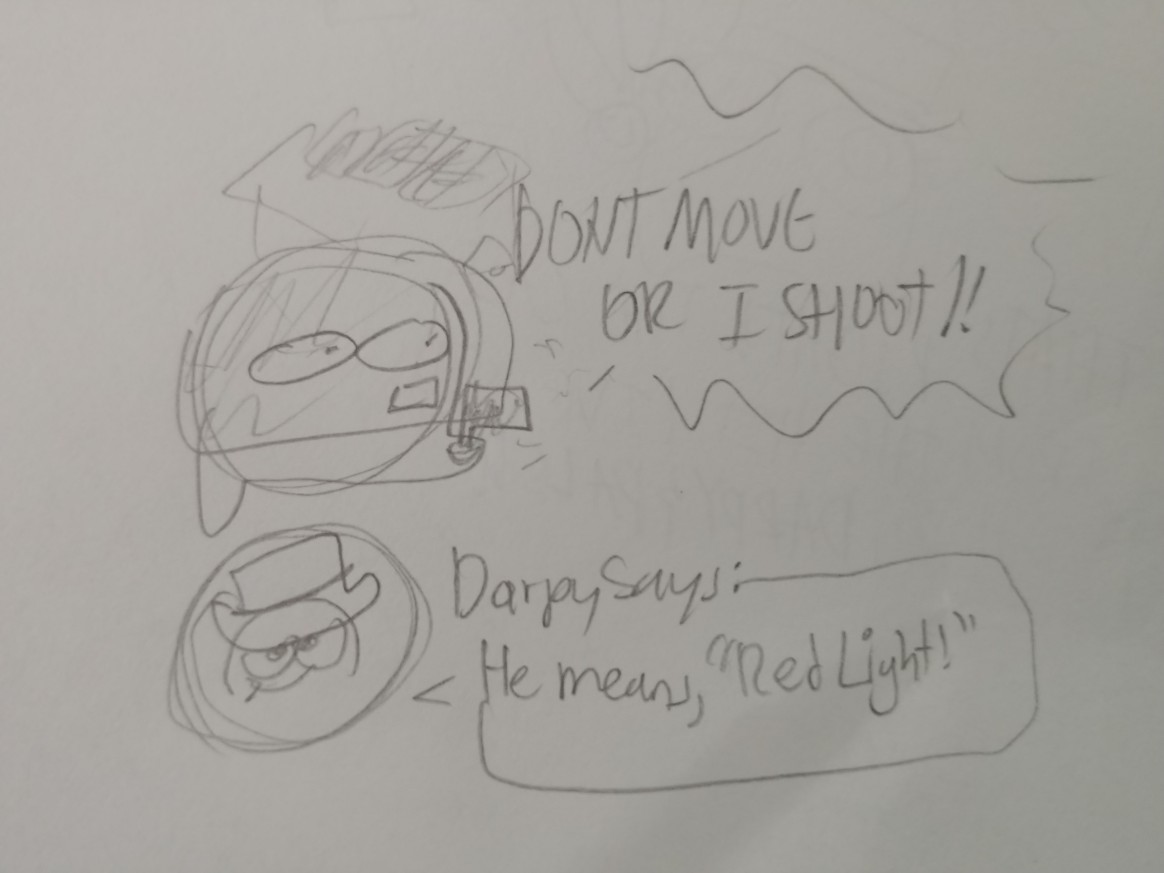 DONT MOVE
OR I SHOOT!!
Darpy Says:
He means, "Red Light!"